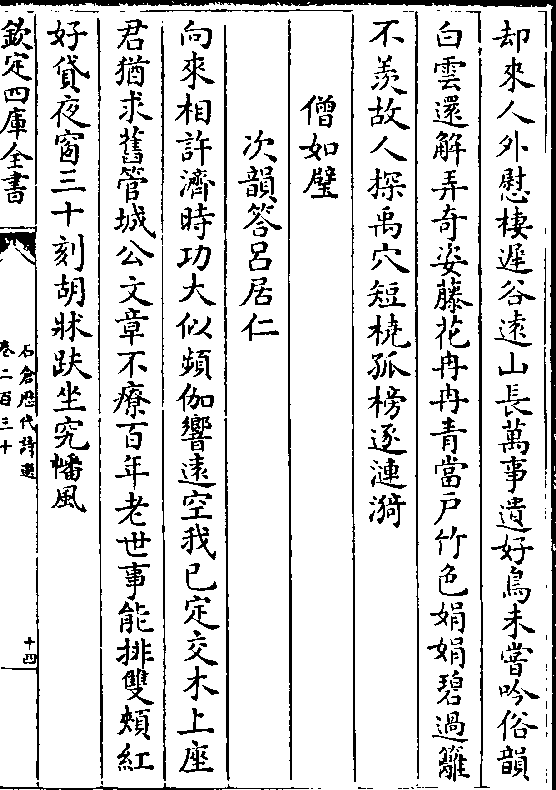 却來人外慰棲遲谷遠山長萬事遺好鳥未嘗吟俗韻
白雲還解弄奇姿藤花冉冉青當戸竹色娟娟碧過籬
不羨故人探禹穴短橈孤榜逐漣漪
僧如璧
次韻答呂居仁
向來相許濟時功大似頻伽響遠空我已定交木上座
君猶求舊管城公文章不療百年老世事能排雙頰紅
好貸夜窗三十刻胡牀趺坐究幡風
欽定四庫全書
石倉歴代詩選
卷二百三十
十四